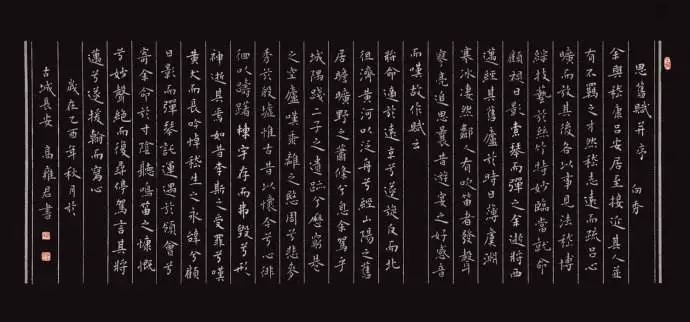 思舊賦并序 向秀
余與嵇康吕安居至接近其人並
有不羈之才然嵇志遠而疏吕心
曠而放其後各以事見法嵇博
綜技藝於絲竹特妙臨當就命
顧視日影索琴而彈之余逝將西
邁經其舊廬於時日薄虞淵
寒冰凄然鄰人有吹笛者發聲
寥亮追思曩昔遊宴之好感音
而嘆故作賦云
將命適於遠京兮遂旋反而北
徂濟黄河以泛舟兮經山陽之舊
居瞻曠野之蕭條兮息余駕乎
城隅踐二子之遺跡兮歷窮巷
之空廬嘆黍離之愍周兮悲麥
秀於殷墟惟古昔以懷今兮心徘
徊以躊躇棟宇存而弗毀兮形
神逝其焉如昔李斯之受罪兮嘆
黄犬而長吟悼嵇生之永辭兮顧
日影而彈琴託運遇於領會兮
寄余命於寸陰聽鳴笛之慷慨
兮妙聲絕而復尋停駕言其將
邁兮遂援翰而寫心
歲在乙酉年秋月於
古城長安 高雍君書